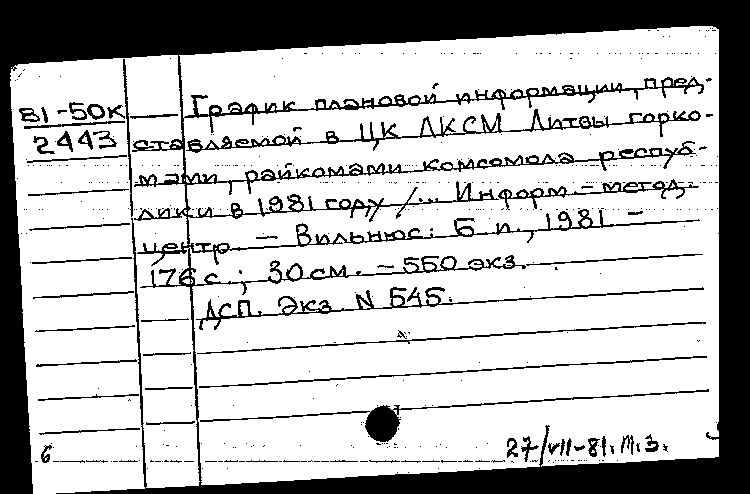 81-50к
2443
График плановой информации, пред-
ставляемой в ЦК ЛКСМ Литвы горко-
мами, райкомами комсомола респуб-
лики в 1981 году /... Информ.-метод.
центр. - Вильнюс: Б.и., 1981 -
176 с.; 30 см. - 550 экз.
ДСП. Экз N 545.
6
27/VII-81. М.З.